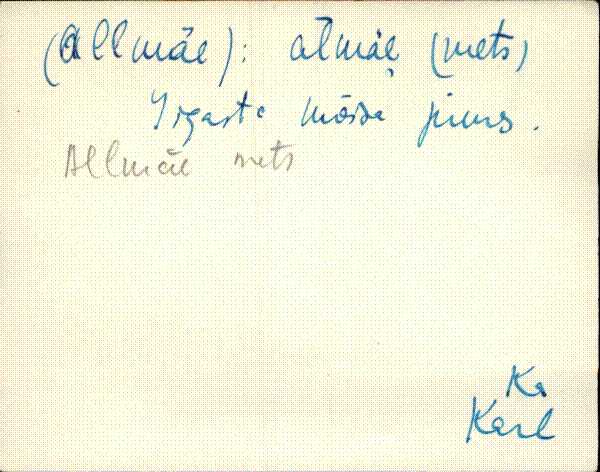 (Allmäe): al̄mäe̬ (mets)
Iigaste mõisa juures.
Allmäe mets
Ka
Karl